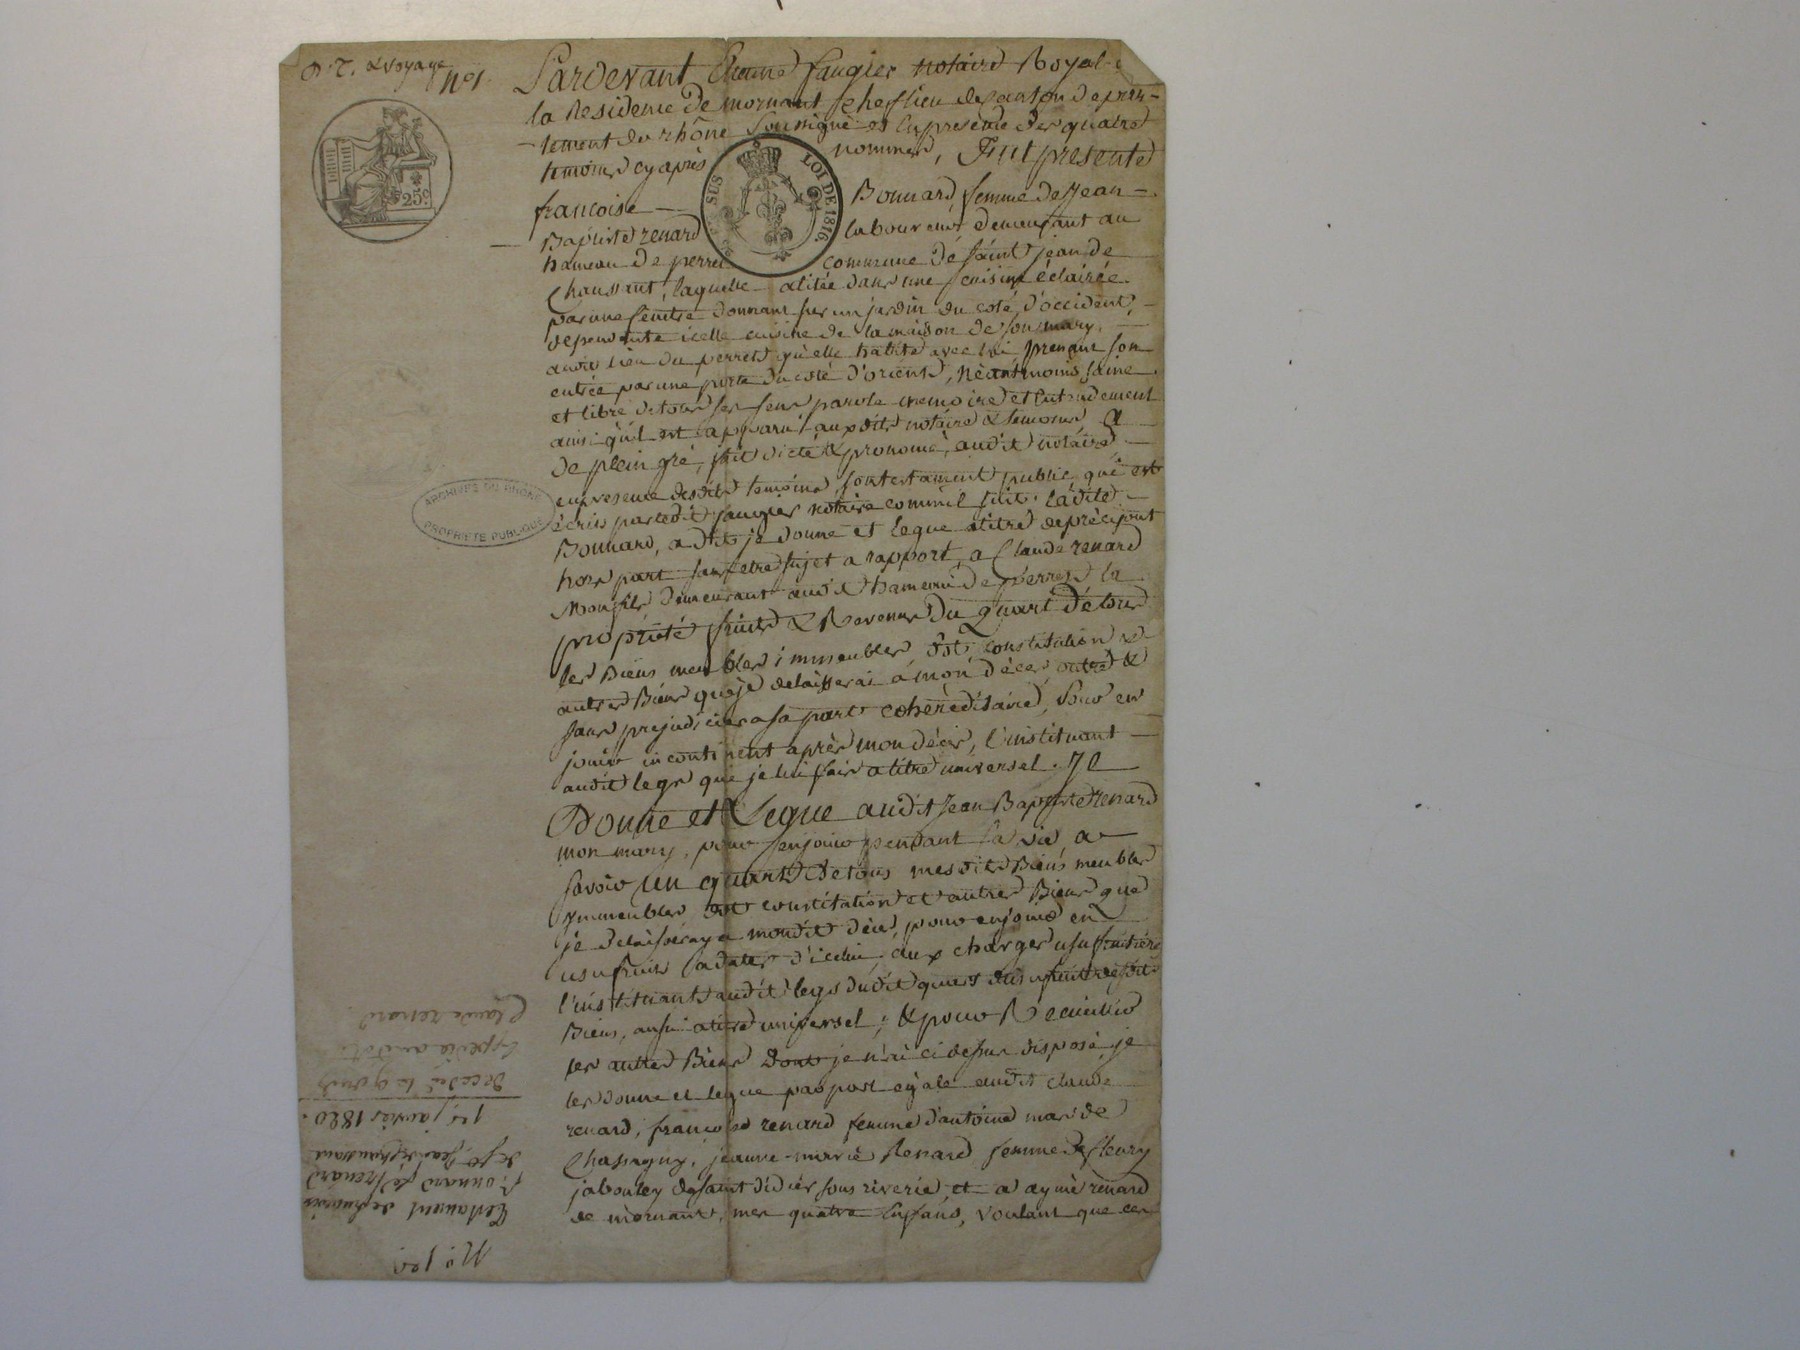 N° 1.
25c
SUS LOI DE 1816.
ARCHIVES DU RHÔNE
PROPRIÉTÉ PUBLIQUE
Pardevant faugier notaire Royal a
la Residence de mornant chef lieu de canton depar-
-tement du rhône soussigné et en presence des quatre
temoins cy après nommés, Fut presente
francoise Bonnard, femme de Jean-
Baptiste renard laboureur demeurant au
hameau de perret commune de saint jean de
Chaussant, laquelle alitée dans une cuisine éclairée
par une fenetre donnant sur un jardin du coté d'occident,
dependante icelle cuisine de la maison de son mary,
audit lieu du perret qu'elle habite avec lui prenant son
entrée par une porte du coté d'orient, néantmoins saine
et libre de tous ses sens parole memoire et entendement
ainsi qu'il est apparu auxdits notaire & temoins, A
de plein gré, fait dicté & prononcé, audit notaire,
en presence desdits temoins son testament public qui est
écrit par ledit faugier notaire comm'il suit. ladite
Bonnard, a dit je donne et legue a titre de préciput
hors part sans etre sujet a rapport, a Claude renard
mon fils demeurant audit hameau de perret la
propriété fruits & Revenus du quart de tous
les Biens meubles immeubles, dot, constitution &
autres Biens que je delaisserai a mon décès, outre &
sans prejudicier a sa part cohéréditaire, pour en
jouir incontinent après mon décès, l'instituant
audit legs que je lui fais a titre universel. Je
Donne et Legue audit Jean Baptiste renard
mon mary, pour en jouir pendant sa vie, a
savoir un quart de tous mesdits Biens meubles
ymmeubles dot constitution et autres Biens que
je delaisseray a mondit décès, pour en jouir en
usufruit a dater d'icelui, aux charges usufruitières
l'instituant audit legs dudit quart en usufruit desdits
Biens, aussi a titre universel; & pour Recueillir
les autres Biens dont je n'ai ci dessus disposé, je
les donne et legue par part egale audit claude
renard, françoise renard femme d'antoine mas de
Chassagny, jeanne-marie Renard femme de fleury
jabouley de saint didier sous riverie et a aymé renard
de mornant, mes quatre Enfans, voulant que ces
N° 1er
Testament de francoise
Bonnard fe renard
de St Jean de chaussant
1er janvier 1820.
Claude renard